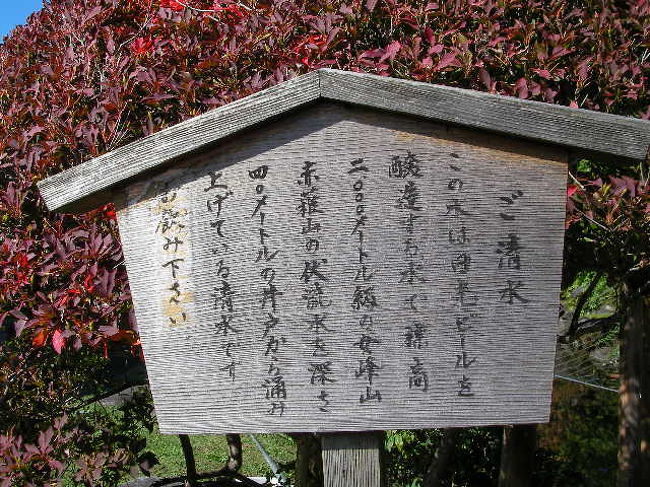 ご清水
この水は日光ビールを
醸造する水で標高
二〇〇〇メートル級の女峰山
赤薙山の伏流水を深さ
四〇メートルの井戸から涌み
上げている清水です
お飲み下さい